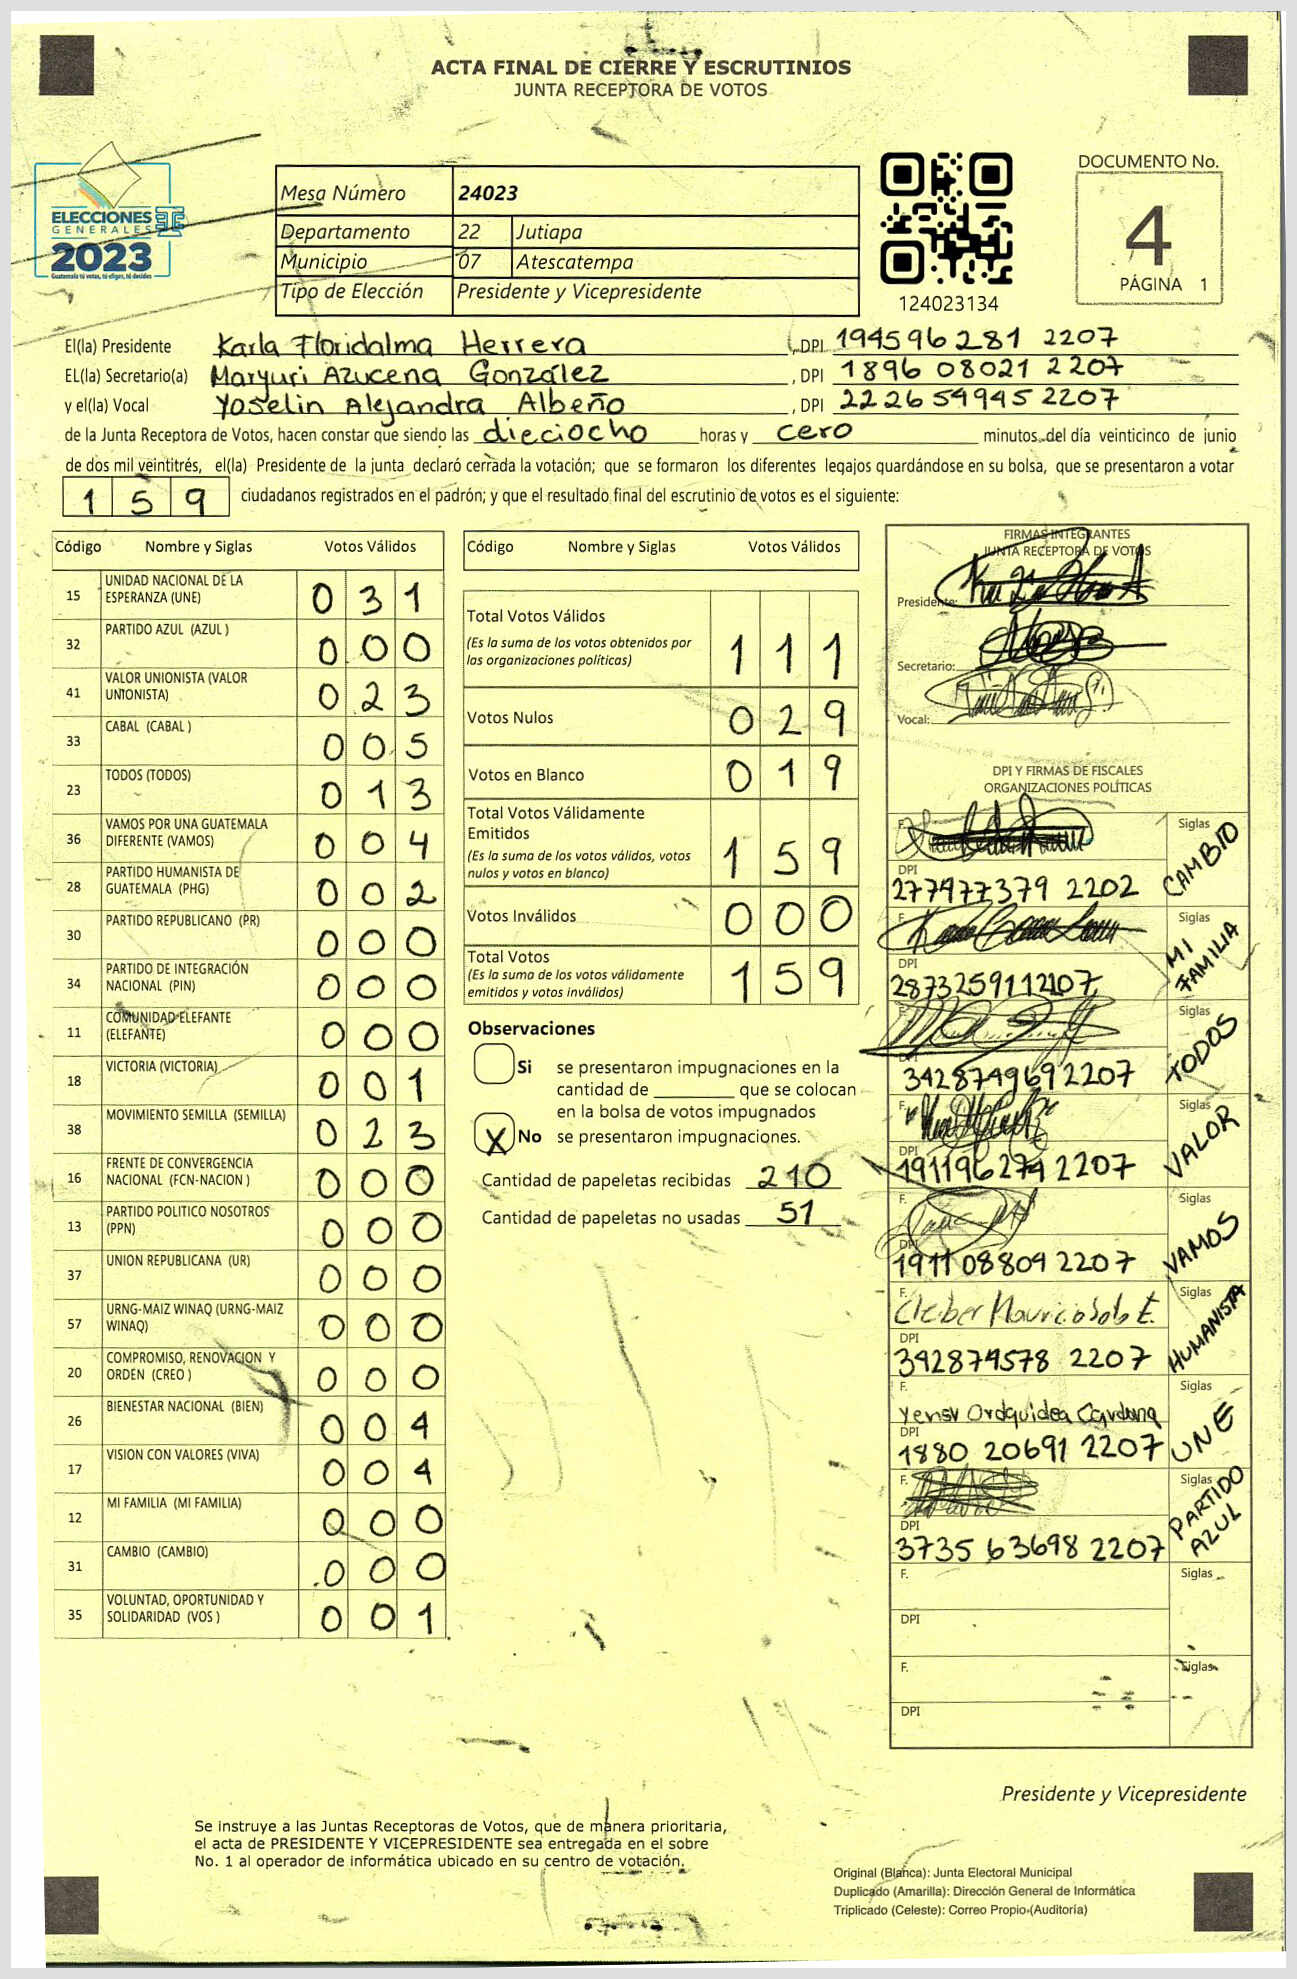 ACTA FINAL DE CIERRE Y ESCRUTINIOS
JUNTA RECEPTORA DE VOTOS
ELECCIONES
GENERALES
2023
Guatemala tú votas, tú eliges, tú decides
Mesa Número 24023
Departamento 22 Jutiapa
Municipio 07 Atescatempa
Tipo de Elección Presidente y Vicepresidente
124023134
DOCUMENTO No.
4
PÁGINA 1
El(la) Presidente Karla Floridalma Herrera , DPI 194596281 2207
EL(la) Secretario(a) Maryuri Azucena González , DPI 1896 08021 2207
y el(la) Vocal Yoselin Alejandra Albeño , DPI 222659945 2207
de la Junta Receptora de Votos, hacen constar que siendo las dieciocho horas y cero minutos del día veinticinco de junio
de dos mil veintitrés, el(la) Presidente de la junta declaró cerrada la votación; que se formaron los diferentes legajos quardándose en su bolsa, que se presentaron a votar
159 ciudadanos registrados en el padrón; y que el resultado final del escrutinio de votos es el siguiente:
Código Nombre y Siglas Votos Válidos
15 UNIDAD NACIONAL DE LA ESPERANZA (UNE) 031
32 PARTIDO AZUL (AZUL ) 000
41 VALOR UNIONISTA (VALOR UNIONISTA) 023
33 CABAL (CABAL ) 005
23 TODOS (TODOS) 013
36 VAMOS POR UNA GUATEMALA DIFERENTE (VAMOS) 004
28 PARTIDO HUMANISTA DE GUATEMALA (PHG) 002
30 PARTIDO REPUBLICANO (PR) 000
34 PARTIDO DE INTEGRACIÓN NACIONAL (PIN) 000
11 COMUNIDAD ELEFANTE (ELEFANTE) 000
18 VICTORIA (VICTORIA) 001
38 MOVIMIENTO SEMILLA (SEMILLA) 023
16 FRENTE DE CONVERGENCIA NACIONAL (FCN-NACION ) 000
13 PARTIDO POLITICO NOSOTROS (PPN) 000
37 UNION REPUBLICANA (UR) 000
57 URNG-MAIZ WINAQ (URNG-MAIZ WINAQ) 000
20 COMPROMISO, RENOVACION Y ORDEN (CREO ) 000
26 BIENESTAR NACIONAL (BIEN) 004
17 VISION CON VALORES (VIVA) 004
12 MI FAMILIA (MI FAMILIA) 000
31 CAMBIO (CAMBIO) 000
35 VOLUNTAD, OPORTUNIDAD Y SOLIDARIDAD (VOS ) 001
Código Nombre y Siglas Votos Válidos
Total Votos Válidos 111
(Es la suma de los votos obtenidos por
las organizaciones políticas)
Votos Nulos 029
Votos en Blanco 019
Total Votos Válidamente
Emitidos 159
(Es la suma de los votos válidos, votos
nulos y votos en blanco)
Votos Inválidos 000
Total Votos 159
(Es la suma de los votos válidamente
emitidos y votos inválidos)
Observaciones
Si se presentaron impugnaciones en la
cantidad de ________ que se colocan
en la bolsa de votos impugnados
X No se presentaron impugnaciones.
Cantidad de papeletas recibidas 210
Cantidad de papeletas no usadas 51
FIRMAS INTEGRANTES
JUNTA RECEPTORA DE VOTOS
Presidente:
Secretario:
Vocal:
DPI Y FIRMAS DE FISCALES
ORGANIZACIONES POLÍTICAS
F. Siglas CAMBIO
DPI
277977379 2202
F. Siglas MI FAMILIA
DPI
2873259112107
F. Siglas TODOS
DPI
342874969 2207
F. Siglas VALOR
DPI
191196274 2207
F. Siglas VAMOS
DPI
191108809 2207
F. Cleber Mauricio Solo E. Siglas HUMANISTA
DPI
392879578 2207
F. Yensy Ordquidea Cardona Siglas UNE
DPI
1880 20691 2207
F. Siglas PARTIDO AZUL
DPI
3735 63698 2207
F. Siglas
DPI
F. Siglas
DPI
Presidente y Vicepresidente
Se instruye a las Juntas Receptoras de Votos, que de manera prioritaria,
el acta de PRESIDENTE Y VICEPRESIDENTE sea entregada en el sobre
No. 1 al operador de informática ubicado en su centro de votación.
Original (Blanca): Junta Electoral Municipal
Duplicado (Amarilla): Dirección General de Informática
Triplicado (Celeste): Correo Propio (Auditoría)